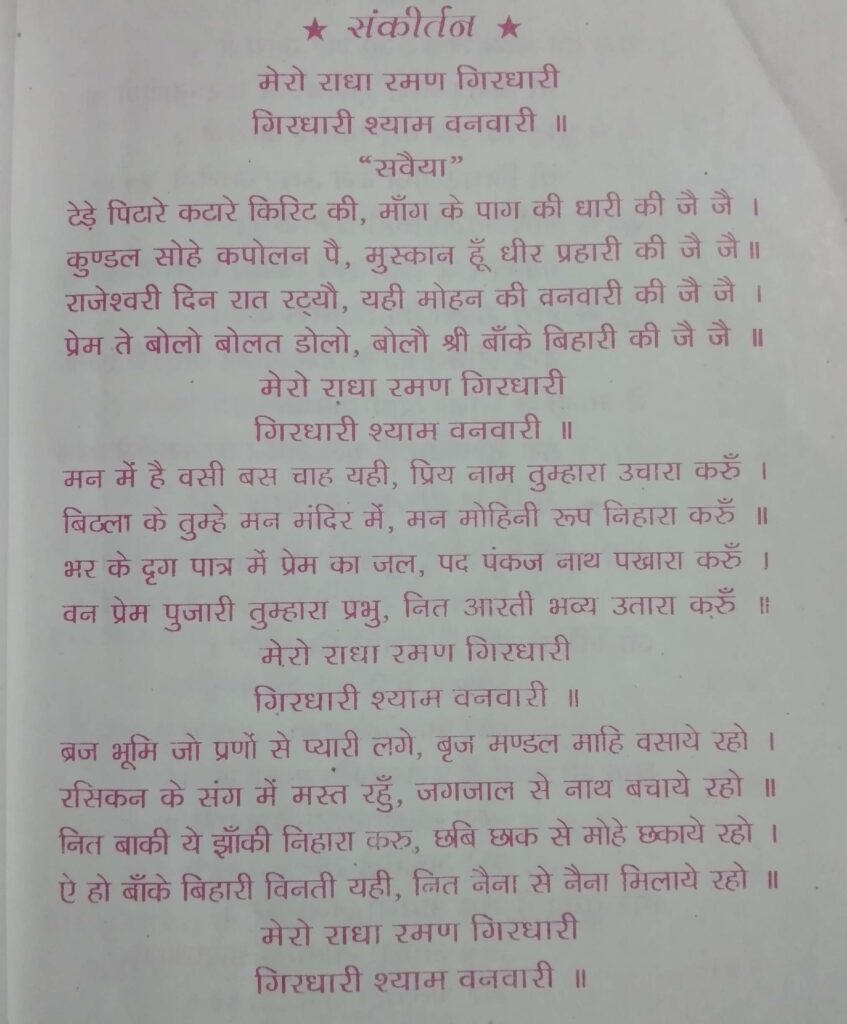 ★ संकीर्तन ★
मेरो राधा रमण गिरधारी
गिरधारी श्याम वनवारी ॥
“सवैया”
टेड़े पिटारे कटारे किरिट की, माँग के पाग की धारी की जै जै ।
कुण्डल सोहे कपोलन पै, मुस्कान हूँ धीर प्रहारी की जै जै ॥
राजेश्वरी दिन रात रट्यौ, यही मोहन की वनवारी की जै जै ।
प्रेम ते बोलो बोलत डोलो, बोलौ श्री बाँके बिहारी की जै जै ॥
मेरो राधा रमण गिरधारी
गिरधारी श्याम वनवारी ॥
मन में है वसी बस चाह यही, प्रिय नाम तुम्हारा उचारा करुँ ।
बिठला के तुम्हे मन मंदिर में, मन मोहिनी रूप निहारा करुँ ॥
भर के दृग पात्र में प्रेम का जल, पद पंकज नाथ पखारा करुँ ।
वन प्रेम पुजारी तुम्हारा प्रभु, नित आरती भव्य उतारा करुँ ॥
मेरो राधा रमण गिरधारी
गिरधारी श्याम वनवारी ॥
ब्रज भूमि जो प्रर्णो से प्यारी लगे, बृज मण्डल माहि वसाये रहो ।
रसिकन के संग में मस्त रहुँ, जगजाल से नाथ बचाये रहो ॥
नित बाकी ये झाँकी निहारा करु, छबि छाक से मोहे छकाये रहो ।
ऐ हो बाँके बिहारी विनती यही, नित नैना से नैना मिलाये रहो ॥
मेरो राधा रमण गिरधारी
गिरधारी श्याम वनवारी ॥